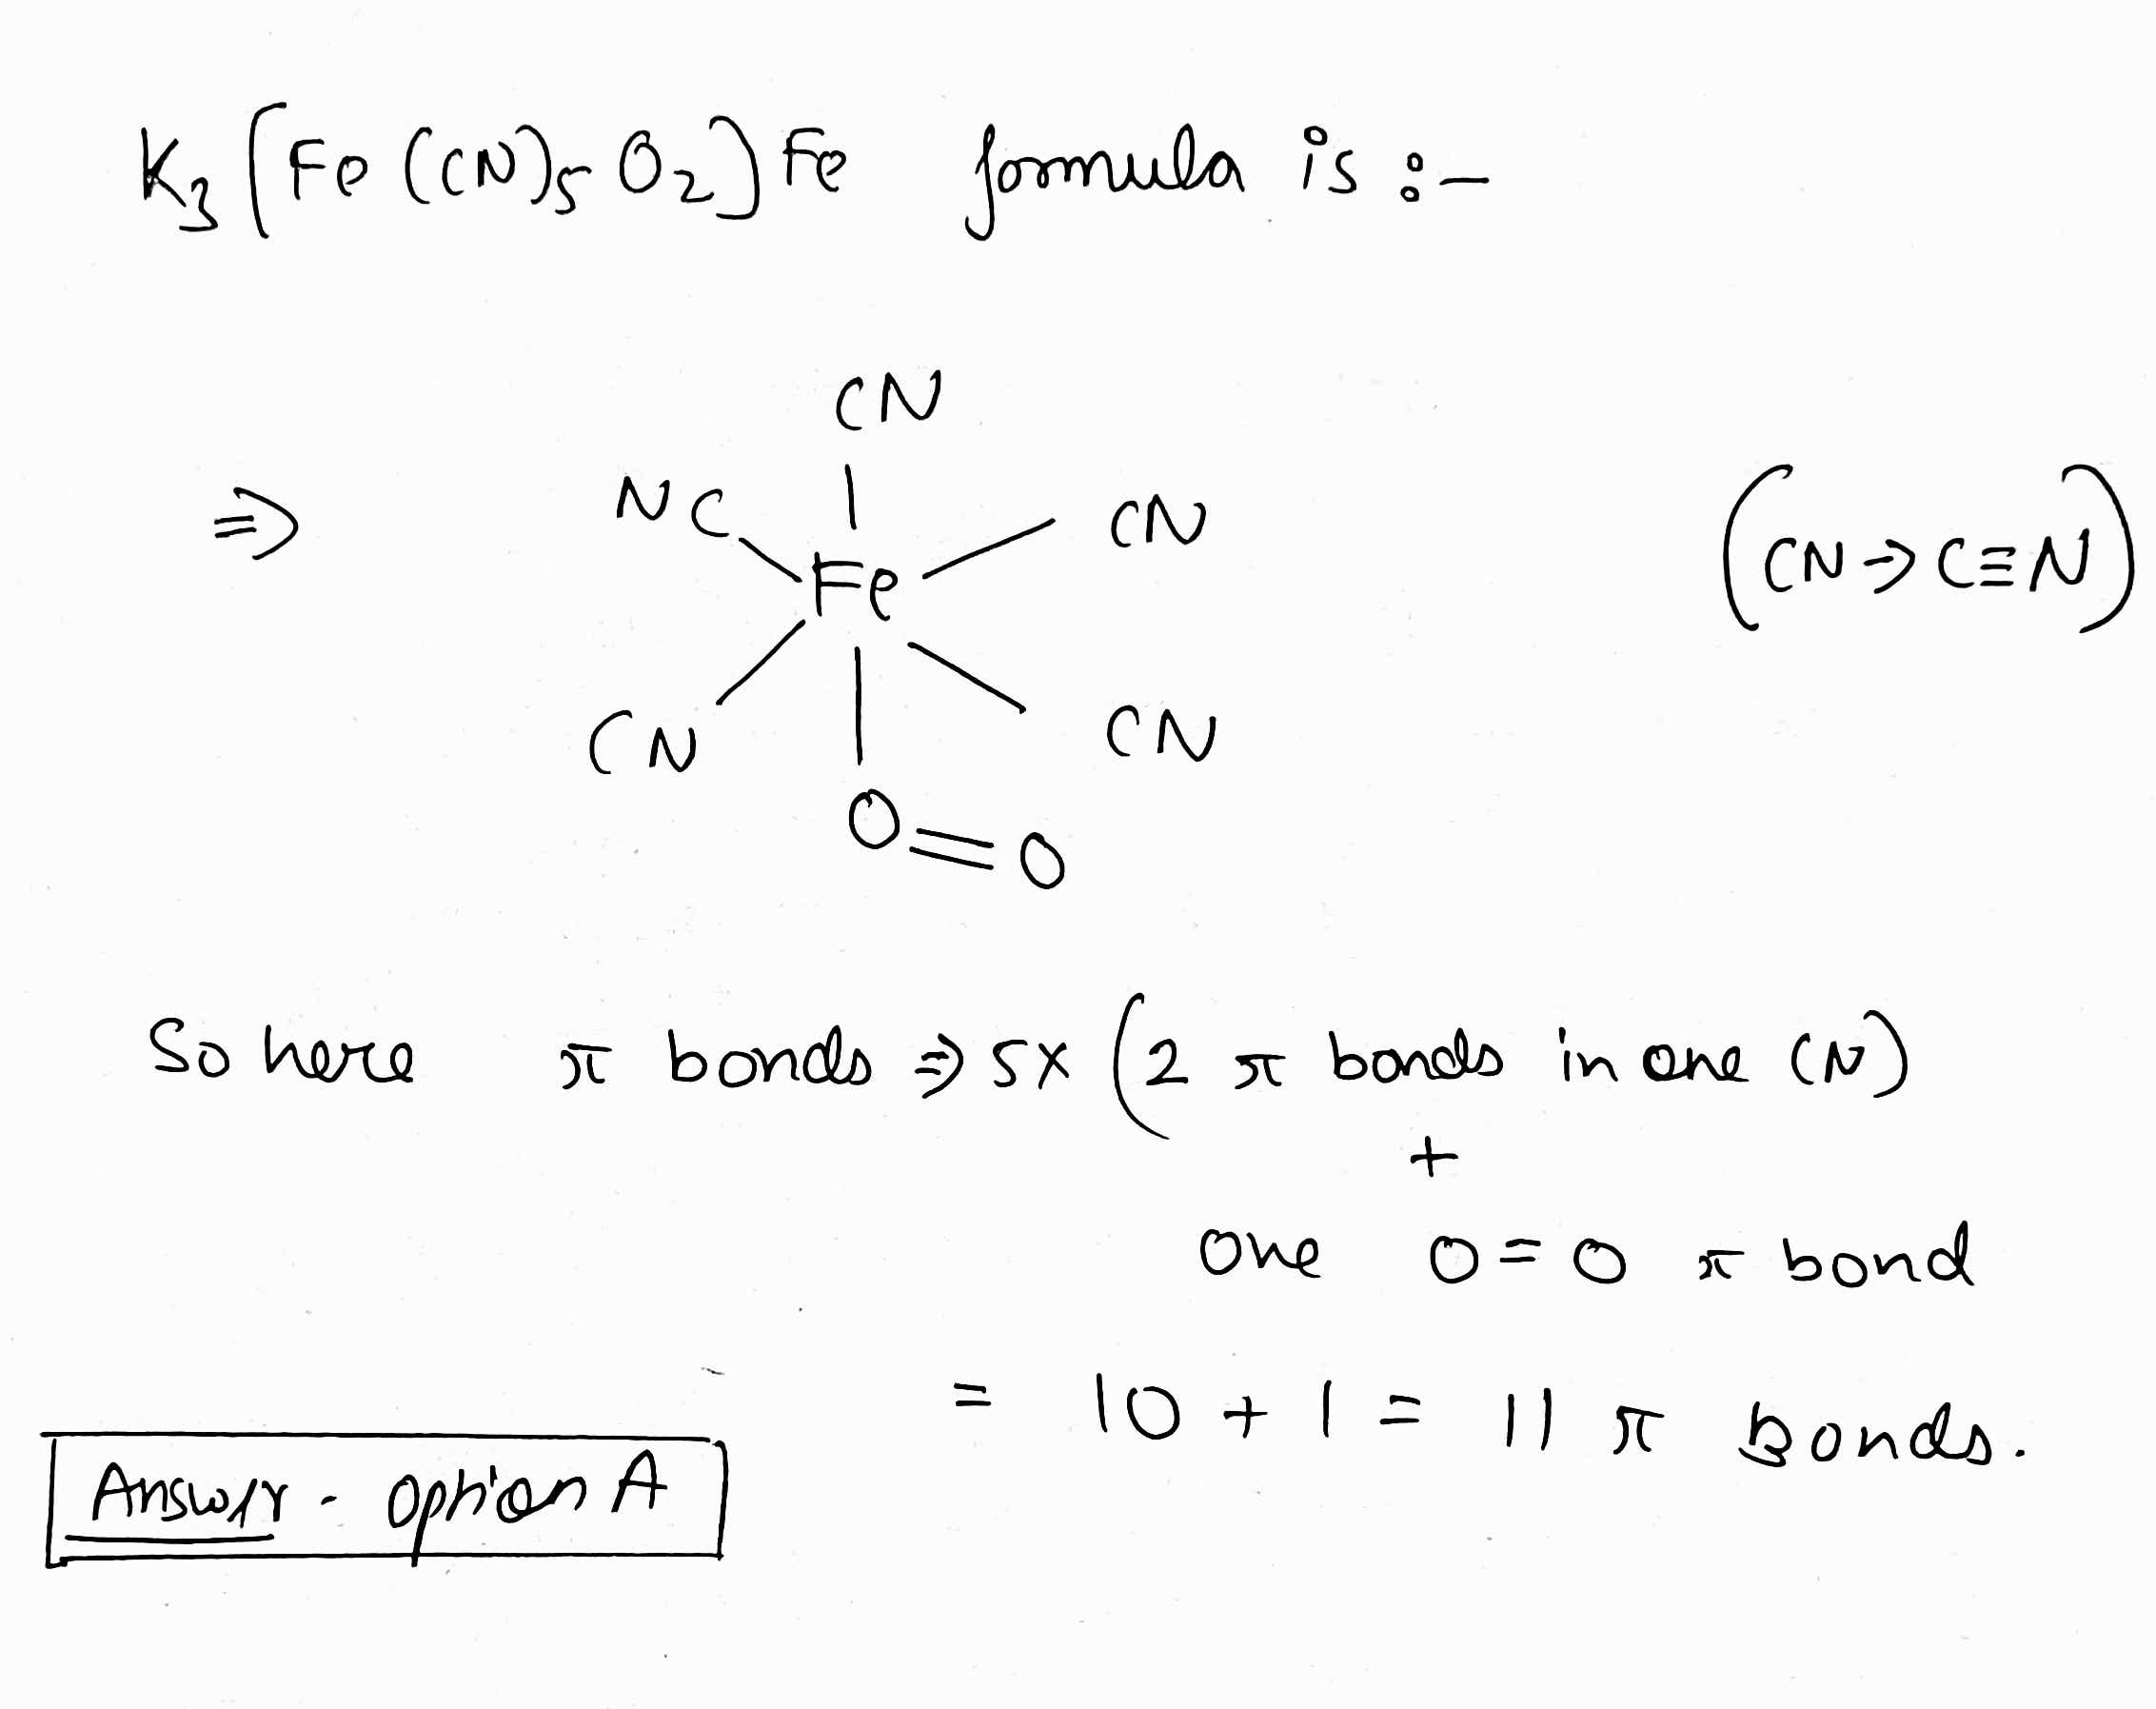 K3 [Fe (CN)5 O2] Fe formula is :-
CN
NC CN
⇒ Fe (CN ⇒ C≡N)
CN CN
O=O
So here π bonds ⇒ 5x (2 π bonds in one CN)
+
one O=O π bond
= 10 + 1 = 11 π Bonds.
Answer - option A